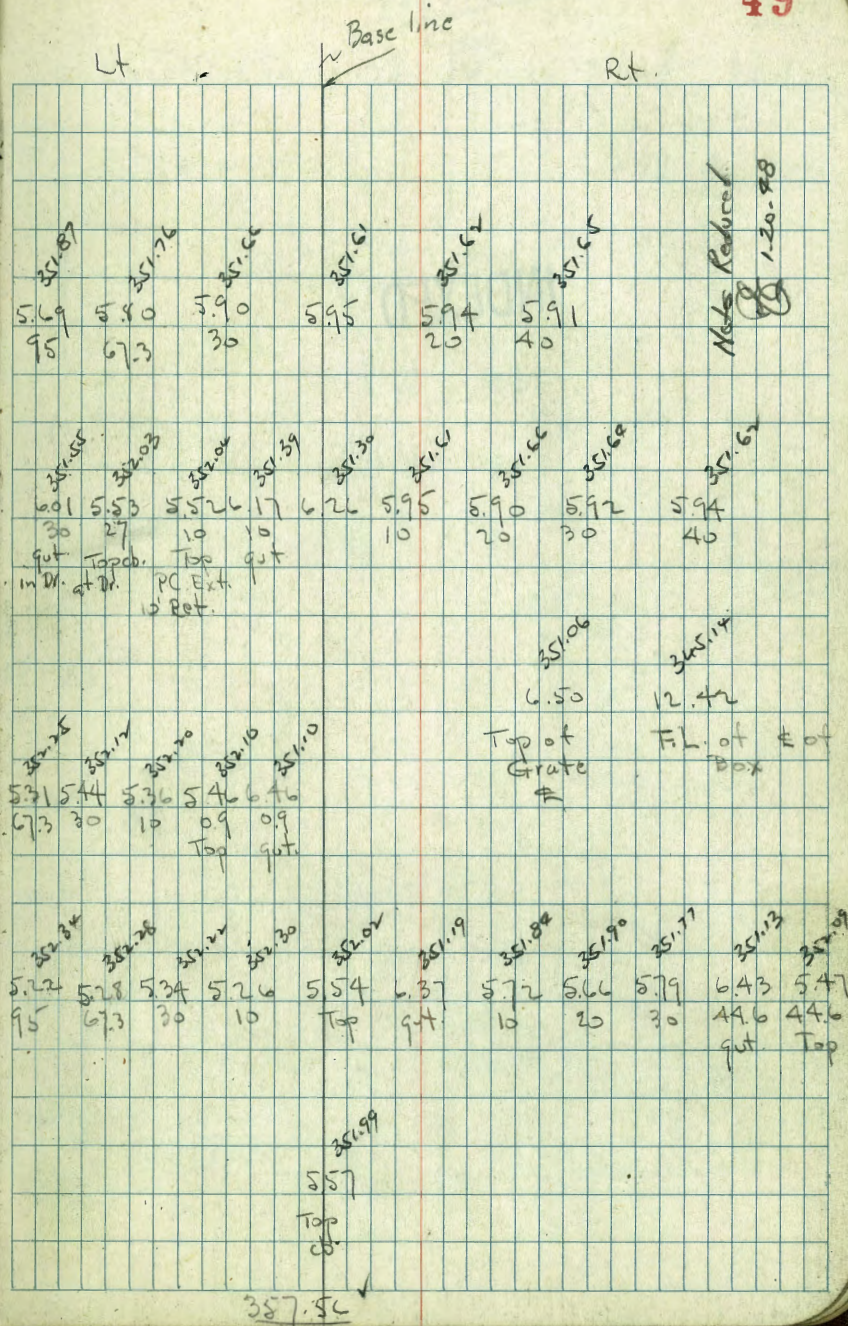 49
Base line
Lt. Rt.
Notes Reduced
1-20-48
351.87 351.76 351.66 351.61 351.62 351.65
5.69 5.80 5.90 5.95 5.94 5.91
95 67.3 30 20 40
351.55 352.03 352.04 351.39 351.30 351.61 351.66 351.64 351.62
6.01 5.53 5.52 6.17 6.26 5.95 5.90 5.92 5.94
30 27 10 10 10 20 30 40
gut. Top cb. Top gut
in Dr. at Dr. PC Ext.
10' Ret.
351.06 345.14
6.50 12.42
Top of F.L. of ℄ of
Grate Box
℄
352.25 352.12 352.20 352.10 351.10
5.31 5.44 5.36 5.46 6.46
67.3 30 10 0.9 0.9
Top gut.
352.34 352.28 352.22 352.30 352.02 351.19 351.84 351.90 351.77 351.13 352.09
5.22 5.28 5.34 5.26 5.54 6.37 5.72 5.66 5.79 6.43 5.47
95 67.3 30 10 Top gut. 10 20 30 44.6 44.6
gut Top
351.99
5.57
Top
cb.
357.56 ✓